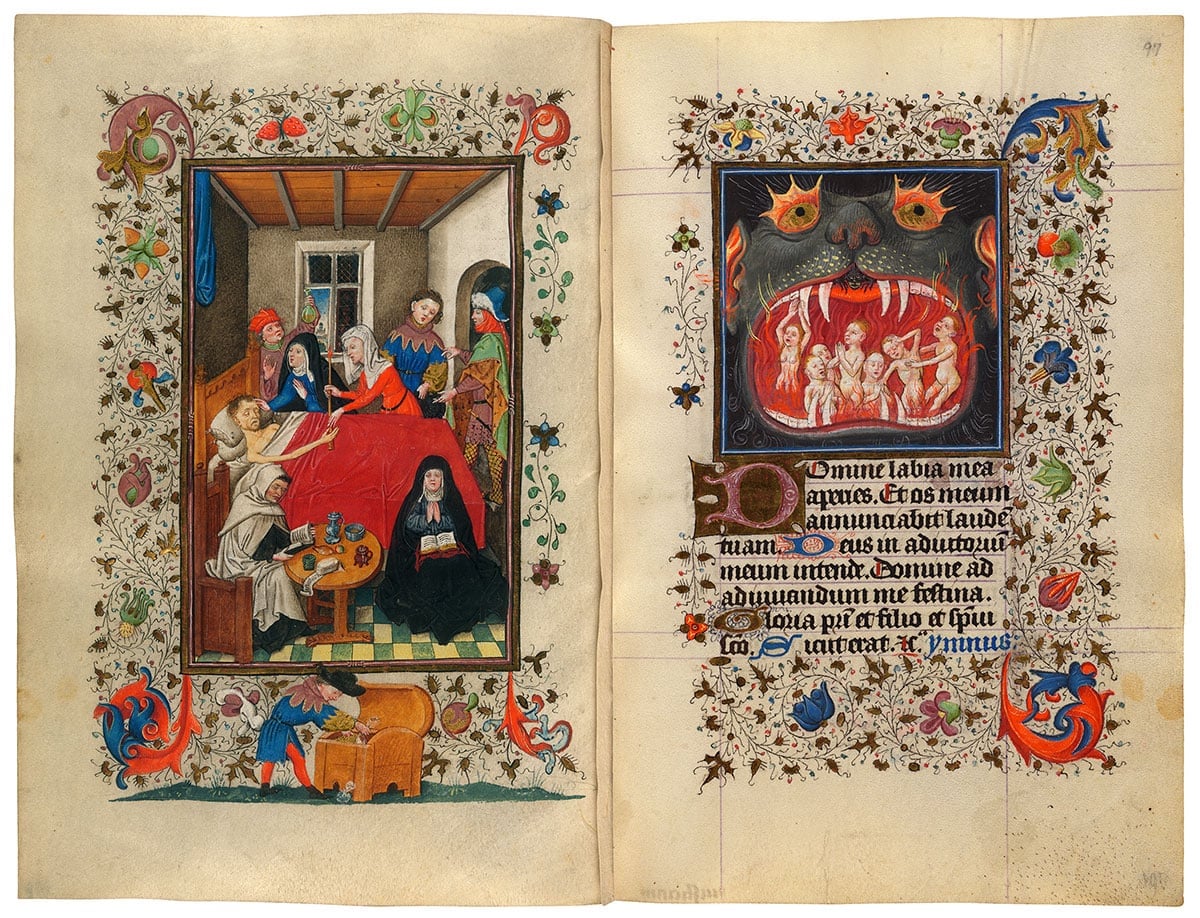 97
Domine labia mea
aperies. Et os meum
annunciabit laudē
tuam. Deus in adiutoriū
meum intende. Domine ad
adiuuandum me festina.
Gloria pr̄i et filio et sp̄ui
sc̄o. Sicut erat. ⁊c. ymnus.